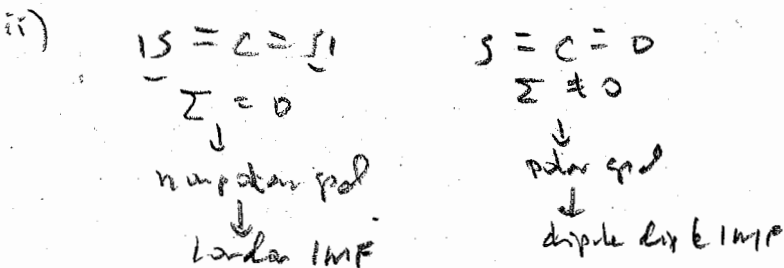 ii)
|S = C = S|
Σ = 0
↓
nonpolar
↓
London IMF
S = C = O
Σ ≠ 0
↓
polar
↓
dipole dip le IMF